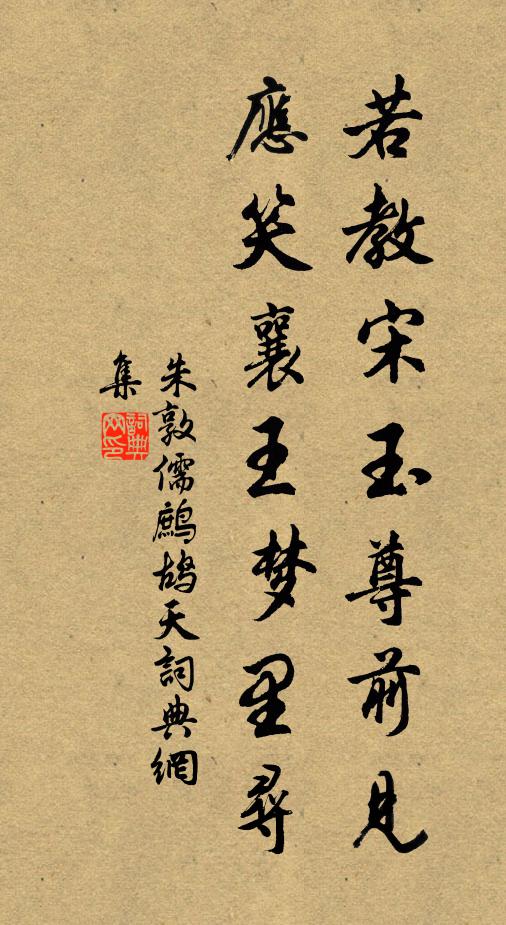 若教宋玉尊前見
應笑襄王梦里尋
朱敦儒鷓鴣天詞典網
集
詞典網印